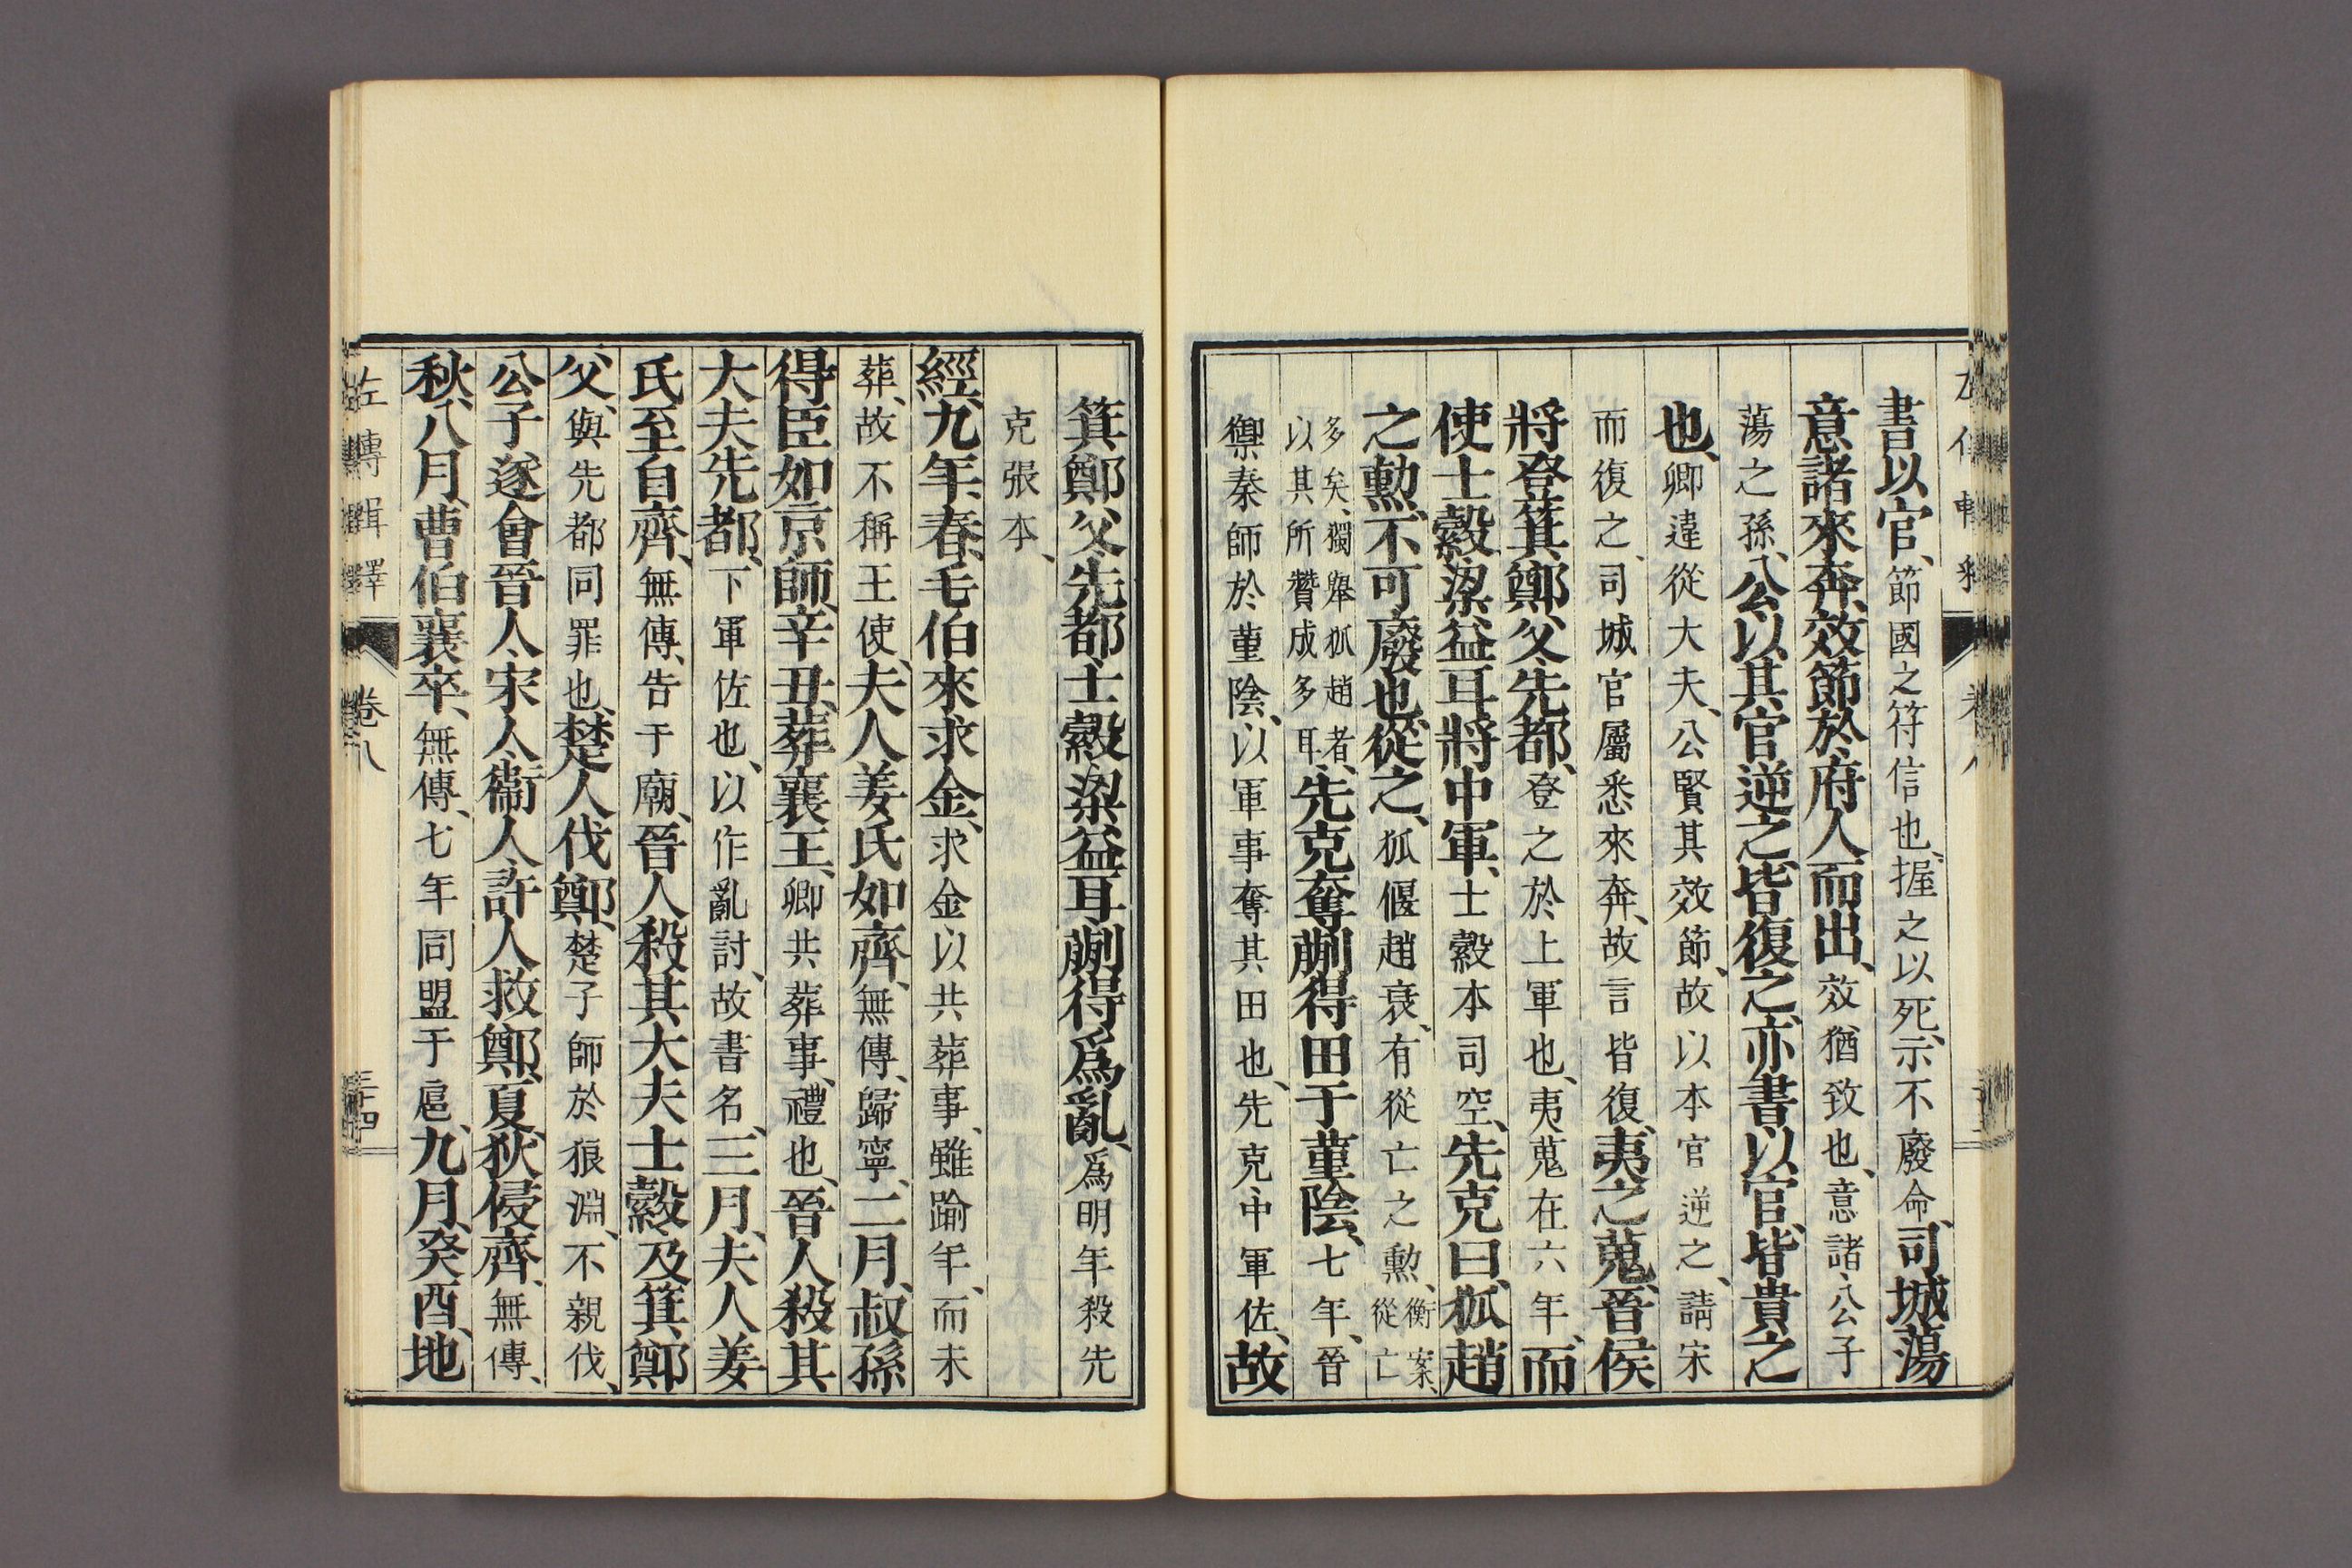 書以官、節國之符信也、握之以死、示不廢命、司城蕩
意諸來奔、效節於府人而出、效猶致也、意諸、公子
蕩之孫、公以其官逆之、皆復之、亦書以官、皆貴之
也、卿違從大夫、公賢其效節、故以本官逆之、請宋
而復之、司城官屬悉來奔、故言皆復、夷之蒐、晉侯
將登箕鄭父先都、登之於上軍也、夷蒐在六年、而
使士縠梁益耳將中軍、士縠本司空、先克曰、狐趙
之勳、不可廢也、從之、狐偃趙衰、有從亡之勳、衡案、從亡
多矣、獨舉狐趙者、以其所贊成多耳、先克奪蒯得田于菫陰、七年、晉
禦秦師於菫陰、以軍事奪其田也、先克中軍佐、故
箕鄭父先都士縠梁益耳蒯得爲亂、爲明年殺先
克張本、
經、九年、春、毛伯來求金、求金以共葬事、雖踰年、而未
葬、故不稱王使、夫人姜氏如齊、無傳、歸寧、二月、叔孫
得臣如京師、辛丑、葬襄王、卿共葬事、禮也、晉人殺其
大夫先都、下軍佐也、以作亂討、故書名、三月、夫人姜
氏至自齊、無傳、告于廟、晉人殺其大夫士縠及箕鄭
父、與先都同罪也、楚人伐鄭、楚子師於狼淵、不親伐、
公子遂會晉人宋人衞人許人救鄭、夏、狄侵齊、無傳、
秋、八月、曹伯襄卒、無傳、七年同盟于扈、九月、癸酉、地
左傳輯釋 卷八 三十四